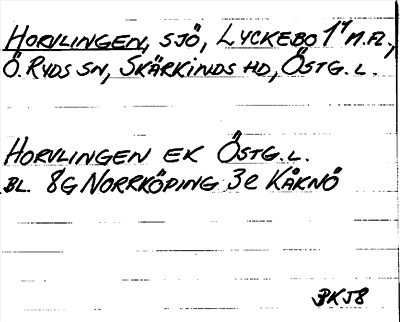 HORVLINGEN, SJÖ, LYCKEBO 1¹ M.FL.,
Ö. RYDS SN, SKÄRKINDS HD, ÖSTG. L.
HORVLINGEN EK ÖSTG. L.
BL. 8G NORRKÖPING 3e KÅKNÖ